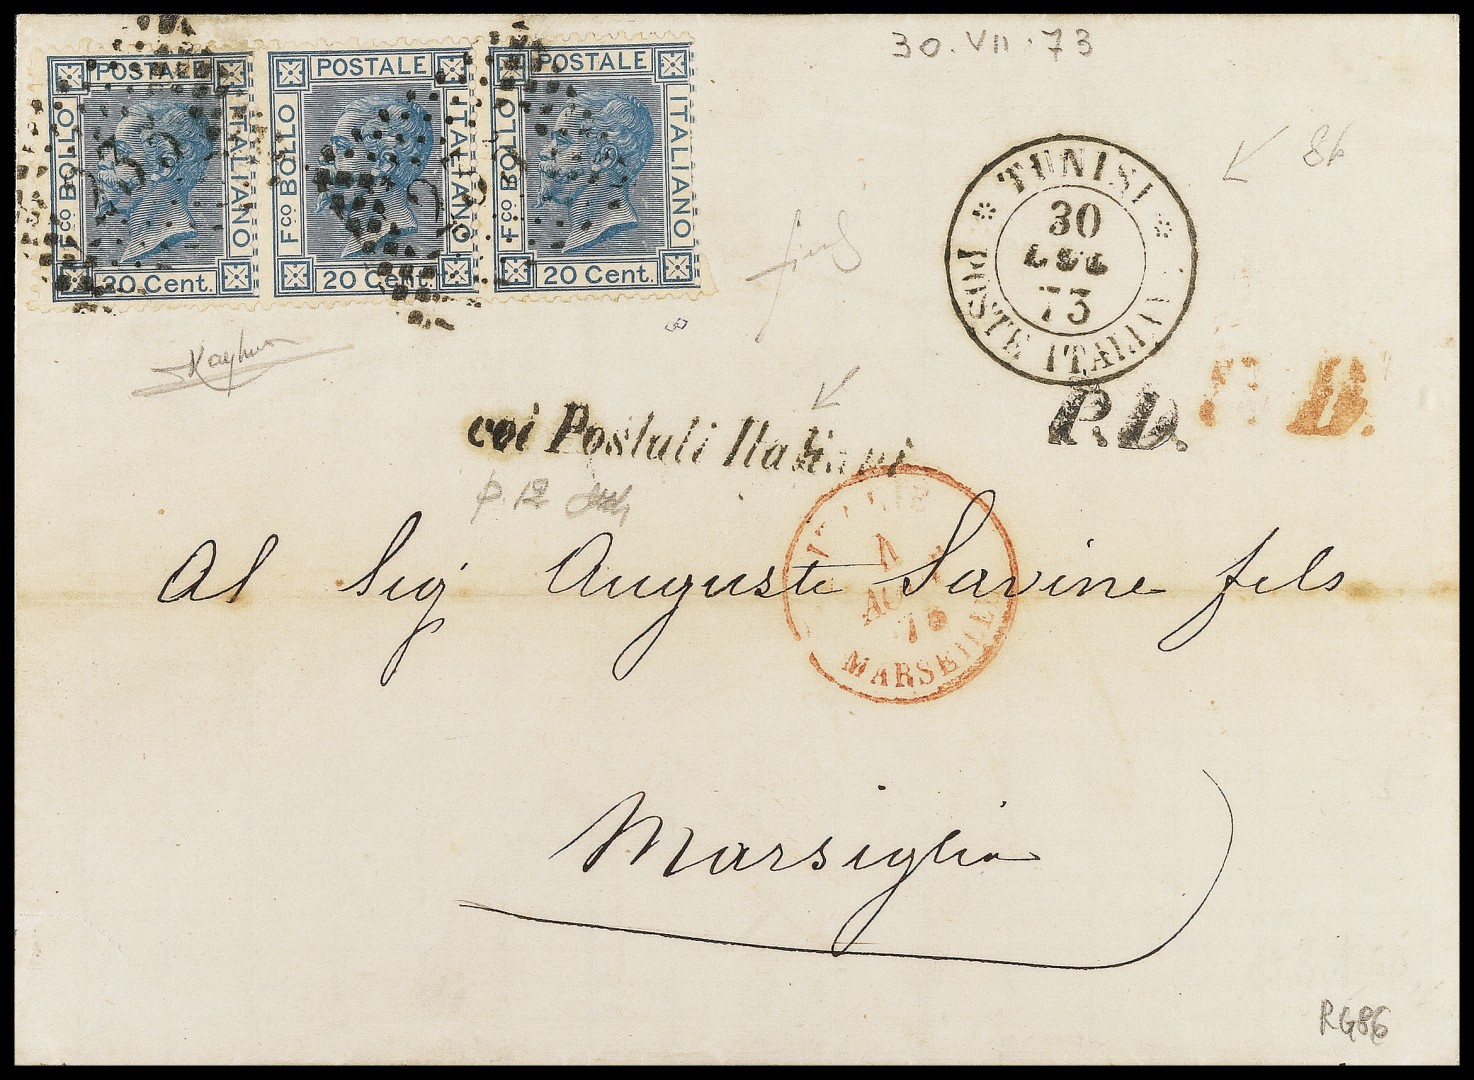 30·VII·73
POSTALE
F.co BOLLO
ITALIANO
20 Cent.
235
POSTALE
F.co BOLLO
ITALIANO
20 Cent.
POSTALE
F.co BOLLO
ITALIANO
20 Cent.
TUNISI
30
LUG
73
POSTE ITALIANE
P.D.
P.D.
coi Postali Italiani
p. 12
ITALIE
AOUT
MARSEILLE
Al Sig Auguste Savine fils
Marsiglia
RG86